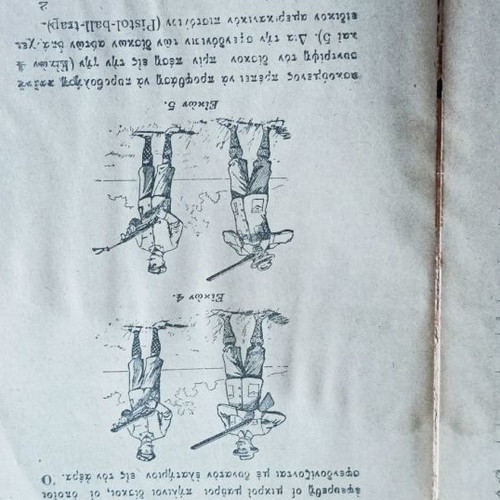 ἐφευρέθη οἱ μικροὶ βαθμοὶ πήλινοι δίσκοι, οἱ ὁποῖοι
σφενδονίζονται μὲ δυνατὸν ἐλατήριον εἰς τὸν ἀέρα. Ὁ
Εἰκὼν 4.
Εἰκὼν 5.
πρέπει νὰ προφθάσῃ νὰ πυροβολήσῃ
συντρίψῃ τὸν δίσκον πρὶν πέσῃ εἰς τὴν γῆν (Εἰκὼν 4
καὶ 5). Διὰ τὴν σφενδόνισιν τῶν δίσκων αὐτῶν ὑπάρχει
εἰδικὸν ἀμερικανικὸν πιστόλιον (Pistol-ball-trap).
2